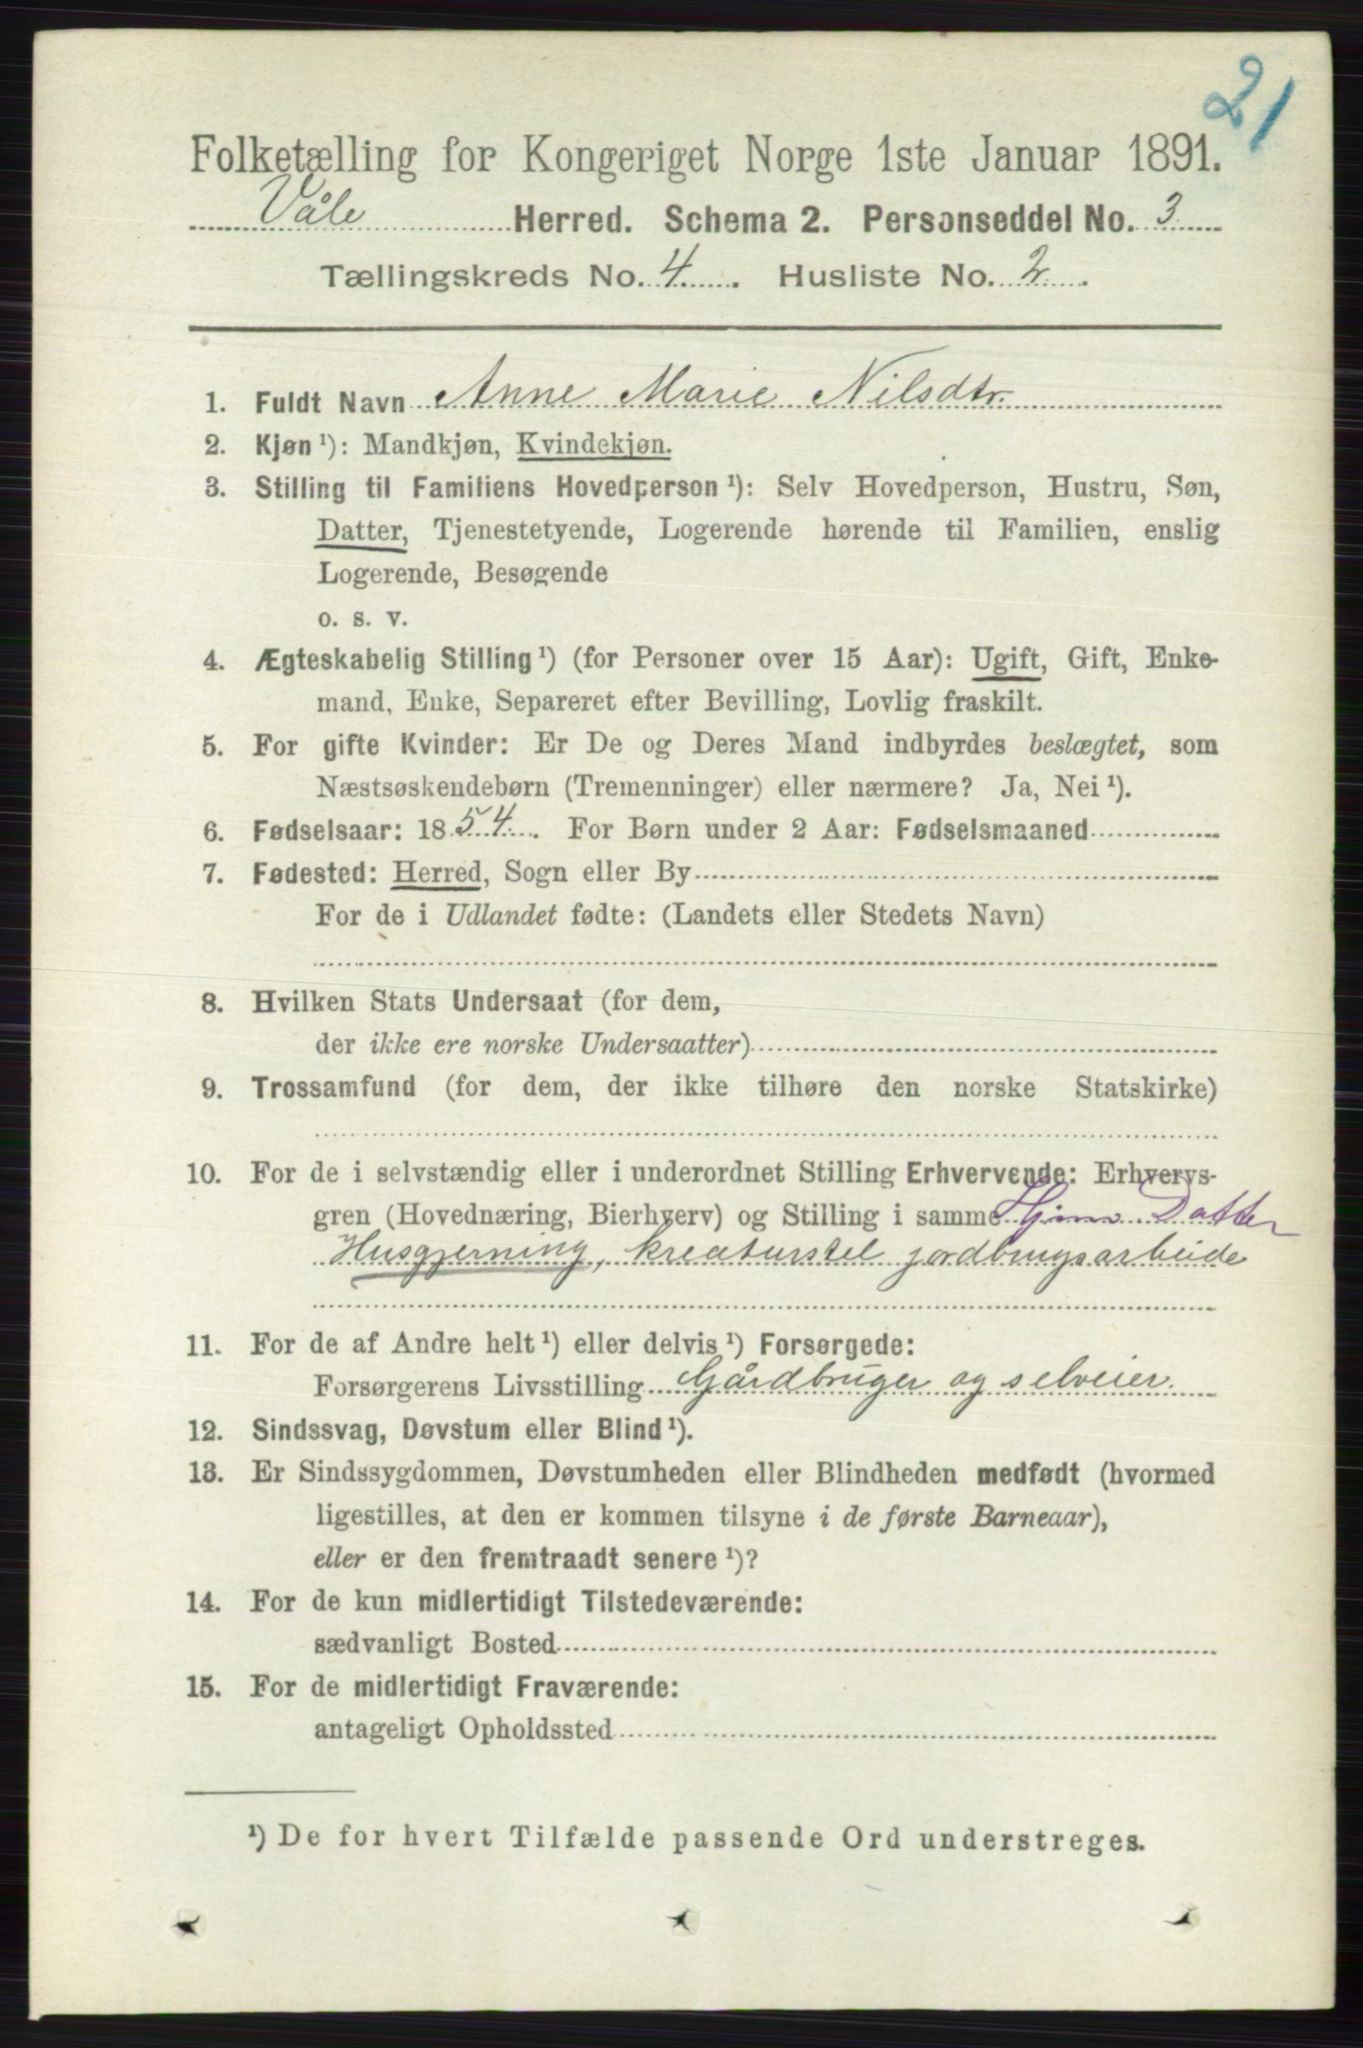 21
Folketælling for Kongeriget Norge 1ste Januar 1891.
Våle Herred. Schema 2. Personseddel No. 3
Tællingskreds No. 4. Husliste No. 2.
1. Fuldt Navn Anne Marie Nilsdtr.
2. Kjøn ¹): Mandkjøn, Kvindekjøn.
3. Stilling til Familiens Hovedperson ¹): Selv Hovedperson, Hustru, Søn,
Datter, Tjenestetyende, Logerende hørende til Familien, enslig
Logerende, Besøgende
o. s. v.
4. Ægteskabelig Stilling ¹) (for Personer over 15 Aar): Ugift, Gift, Enke-
mand, Enke, Separeret efter Bevilling, Lovlig fraskilt.
5. For gifte Kvinder: Er De og Deres Mand indbyrdes beslægtet, som
Næstsøskendebørn (Tremenninger) eller nærmere? Ja, Nei ¹).
6. Fødselsaar: 1854. For Børn under 2 Aar: Fødselsmaaned
7. Fødested: Herred, Sogn eller By
For de i Udlandet fødte: (Landets eller Stedets Navn)
8. Hvilken Stats Undersaat (for dem,
der ikke ere norske Undersaatter)
9. Trossamfund (for dem, der ikke tilhøre den norske Statskirke)
10. For de i selvstændig eller i underordnet Stilling Erhvervende: Erhvervs-
gren (Hovednæring, Bierhverv) og Stilling i samme Datter
Husgjerning, kreaturstel jordbrugsarbeide
11. For de af Andre helt ¹) eller delvis ¹) Forsørgede:
Forsørgerens Livsstilling Gårdbruger og selveier.
12. Sindssvag, Døvstum eller Blind ¹).
13. Er Sindssygdommen, Døvstumheden eller Blindheden medfødt (hvormed
ligestilles, at den er kommen tilsyne i de første Barneaar),
eller er den fremtraadt senere ¹)?
14. For de kun midlertidigt Tilstedeværende:
sædvanligt Bosted
15. For de midlertidigt Fraværende:
antageligt Opholdssted
¹) De for hvert Tilfælde passende Ord understreges.